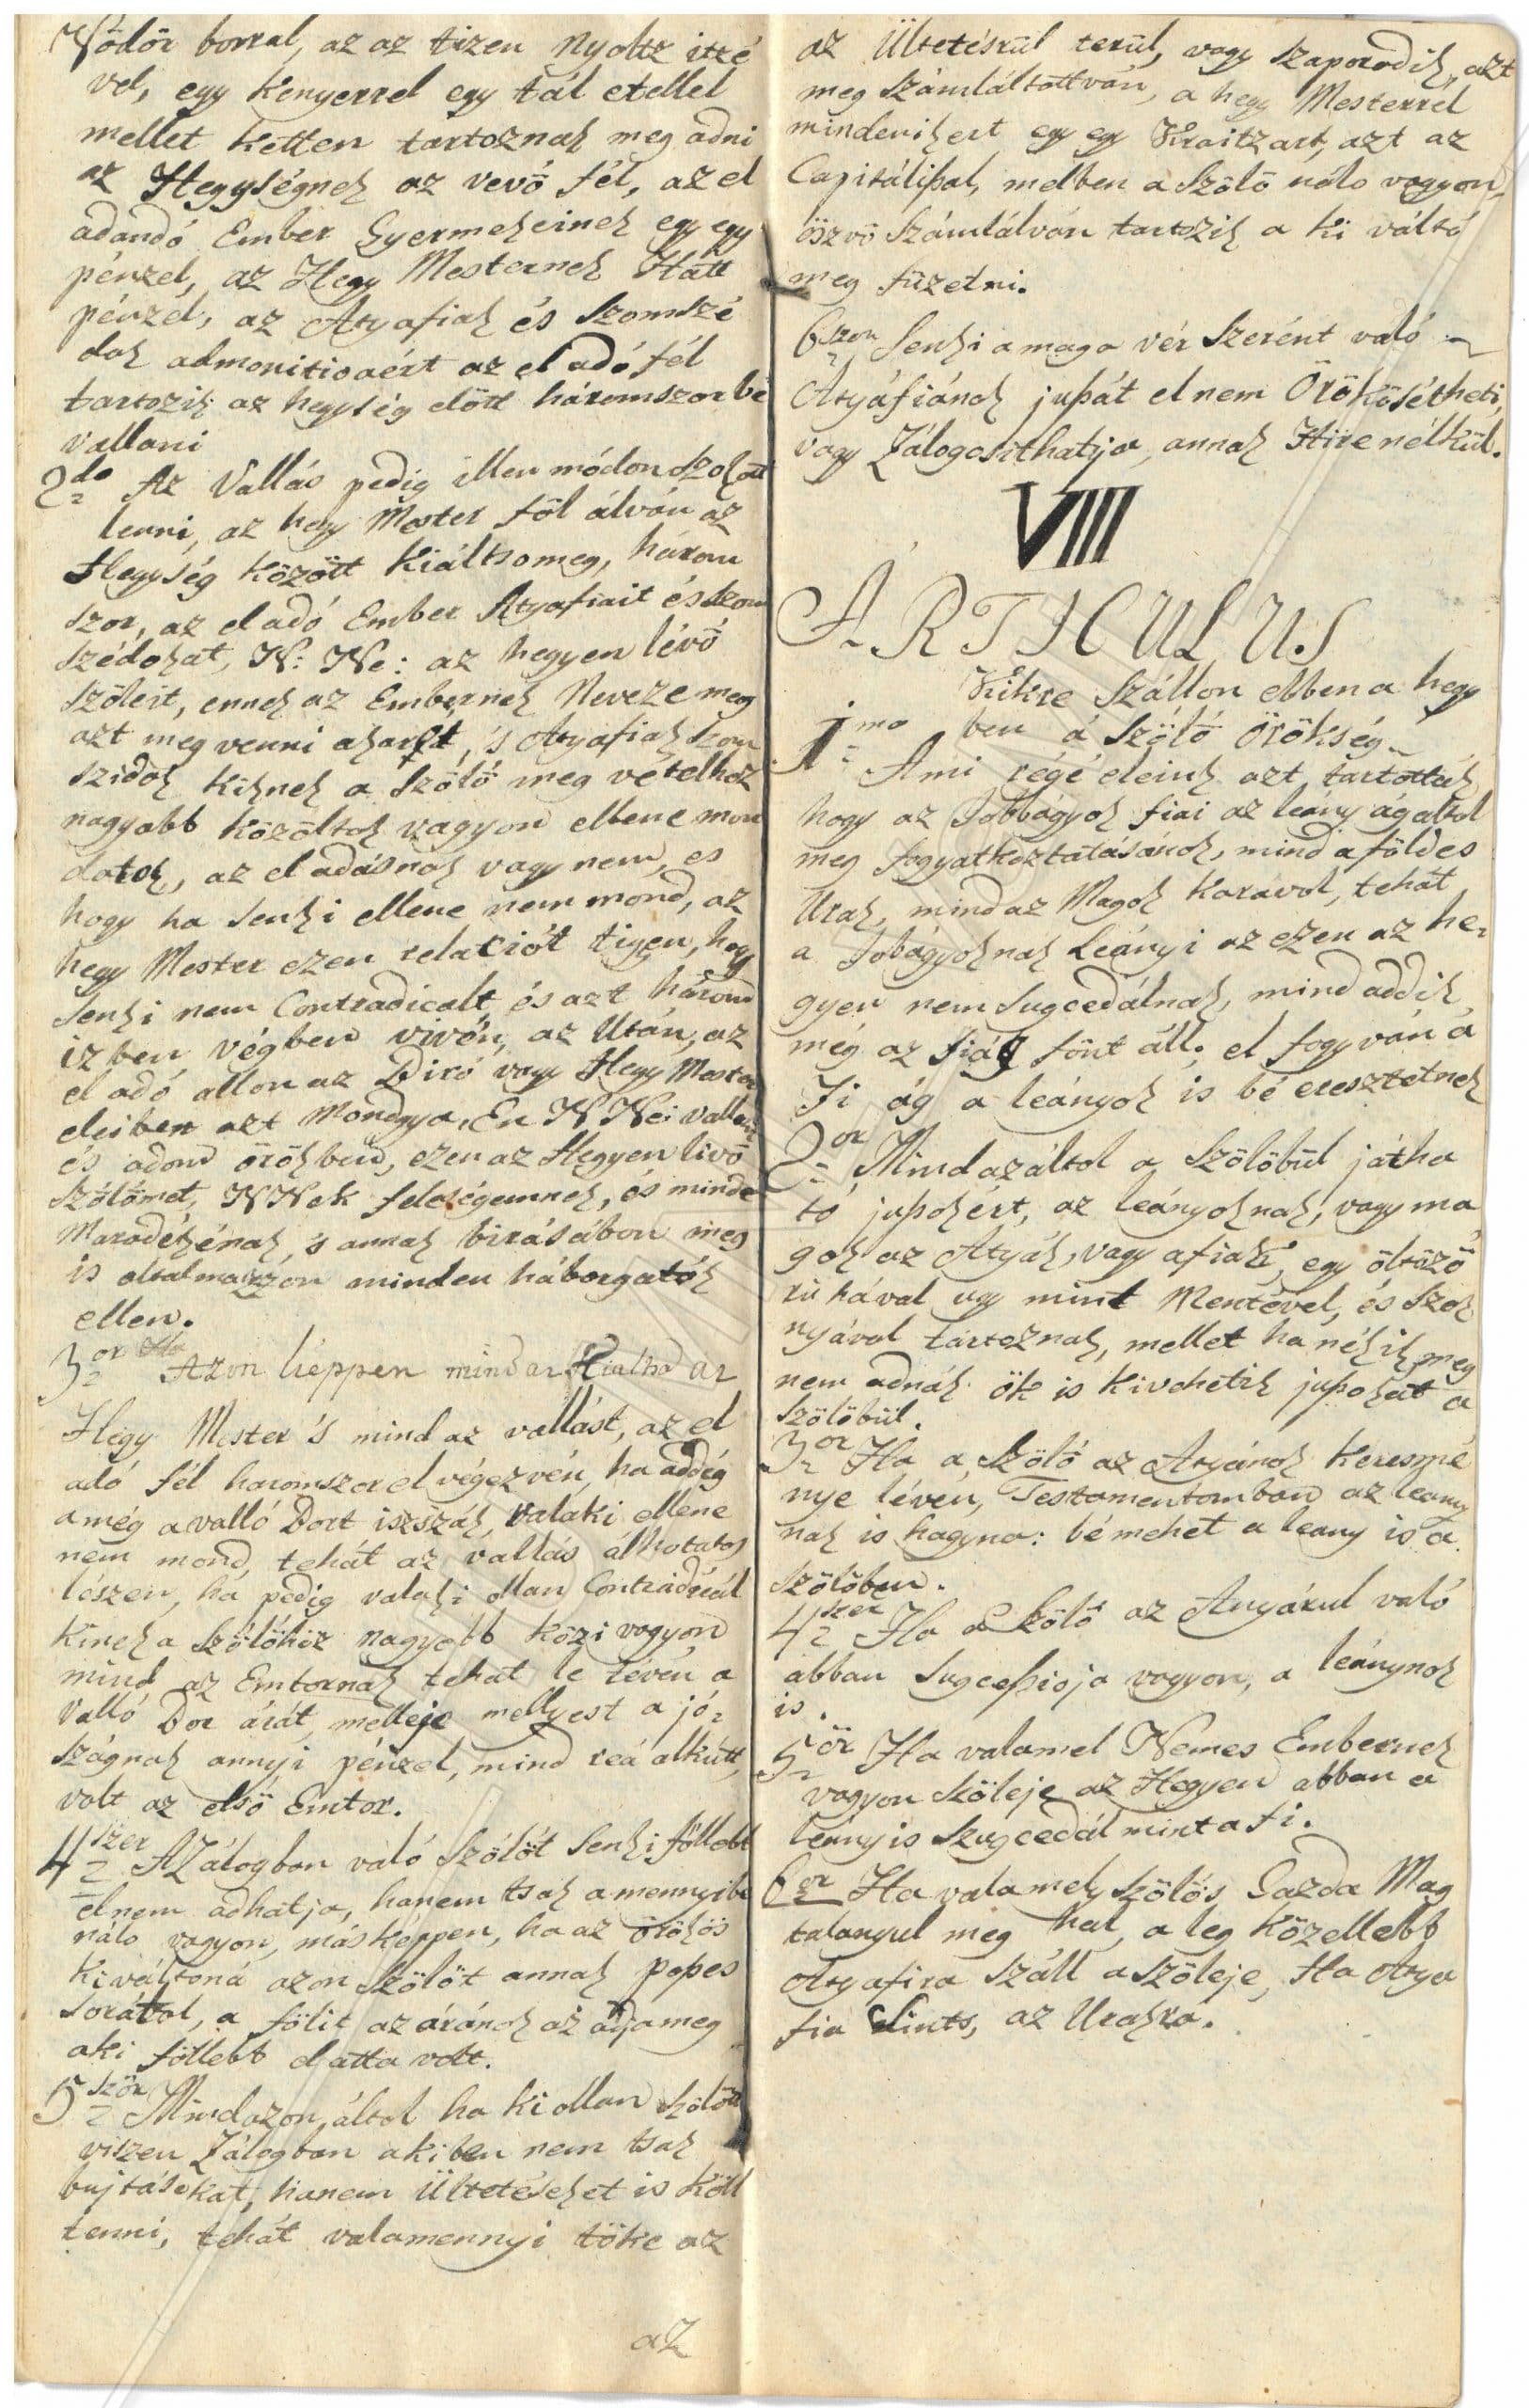 Vödör borral, az az tizen Nyoltz itzé
vel, egy Kenyerrel egy tál etellel
mellet Ketten tartoznak meg adni
az Hegységnek az vevö fél, az el
adandó Ember Gyermekeinek egy egy
pénzel, az Hegy Mesternek Hatt
pénzél, az Atyafiak és Szomszé
dok admonitioaért az el adó fél
tartozik az hegység elött háromszor bé
vallani
2do Az Vallás pedig illen módon szokott
lenni, az hegy Mester föl álván az
Hegység Között Kiáltso meg, három
szor, az el adó Ember Atyafiait és szom
szédokat, N: Ne: az hegyen lévö
szöleit, ennek az Embernek Neveze meg
azt meg venni akarét, 's Atyafiak szom
szidok Kiknek a Szölö meg vételhez
nagyobb Közöttok vagyon ellene mon
datok, az el adásnak vagy nem, es
hogy ha senki ellene nem mond, az
hegy Mester ezen relatiót tigyen, hogy
senki nem Contradicalt, és azt három
izben végben vivén, az Után, az
el adó allon az Biró vagy Hegy Mester
eleiben azt Mondgya, En N Ne: vallom
és adom örökben, ezen az Hegyen livö
Szölömet, N Nek feleségemnek, és minde
Maradékénak, 's annak birásában meg
is oltalmazzon minden háborgatók
ellen.
3or Azon keppen mind az Kialtást az
Hegy Mester 's mind az vallást, az el
adó fél haromszor el végezvén, ha addég
a még a valló Bort iszszák, valaki ellene
nem mond, tehát az vallás álhotatos
lészen, ha pedig valaki ollan Contradicál
Kinek a Szölöhöz nagyobb Közi vagyon
mind az Emtornak tehat le tévén a
Valló Bor árát melleje mellyest a jó=
szágnak annyi pénzel, mind reá alkutt,
volt az elsö Emtor.
4szer A Zálogban való Szölöt Senki föllebb
el nem adhatja, hanem tsak a mennyibe
nálo vagyon, másképpen, ha az örökös
Kiváltoná azon Szölöt annak poßes
sorátol, a fölit az áránok az adja meg
aki föllebb el atta volt.
5ször Mindazon által ha ki ollan Szölött
viszen Zálogban akiben nem tsak
bujtásokat, hanem Ültetéseket is Köll
tenni, tehát valamennyi töke az
az
az Ültetésrül terül, vagy szaporodik, azt
meg Számláltottván, a hegy Mesterrel
mindenikert egy egy Kraitzart, azt az
Capitálißal, melben a Szölö nálo vagyon,
öszvö Számlálván tartozik a Ki váltó
meg füzetni.
6szor Senki a maga vér Szerént való
Atyáfiánok jußát el nem Örökösétheti,
vagy Zálogosithatja, annak Hire nélkül.
VIII
ARTICULUS
Kikre Szállon ebben a hegy
1mo ben á Szölö örökség
A mi régé eleink azt tartották
hogy az Jobbágyok fiai az leány ágaltol
meg fogyatkoztatásánok, mind a földes
Urak, mind az Magok Karával, tehát
a Jobágyoknak Leányi az ezen az he=
gyen nem sugcedálnak, mind addik
még az fiág fönt áll. el fogyván a
Fi ág a leányok is bé eresztetnek
2or Mindazáltol a Szölöbül játha
tó jußokért, az leányoknak, vagy ma
gok az Atyák, vagy a fiaké, egy öltözö
rúhával ugy mint Mentével, és Szok
nyával tartoznak, mellet ha nékik meg
nem adnák ök is kivehetik jußokat a
Szölöbül.
3or Ha a Szölö az Atyánok Keresmé
nye lévén, Testamentomban az leany
nak is hagyna: bé mehet a leany is a
Szölöben.
4szer Ha a Szölö az Anyárul való
abban Sugceßioja vagyon, a leánynok
is.
5ör Ha valamel Nemes Embernek
vagyon Szöleje az Hegyen abban a
leány is Szugcedál mint a fi.
6or Ha valamely szölös Gazda Mag
talanyul meg hal, a leg Közellebb
Atyafira száll a szöleje, Ha Atya
fia Sints, az Urakra.